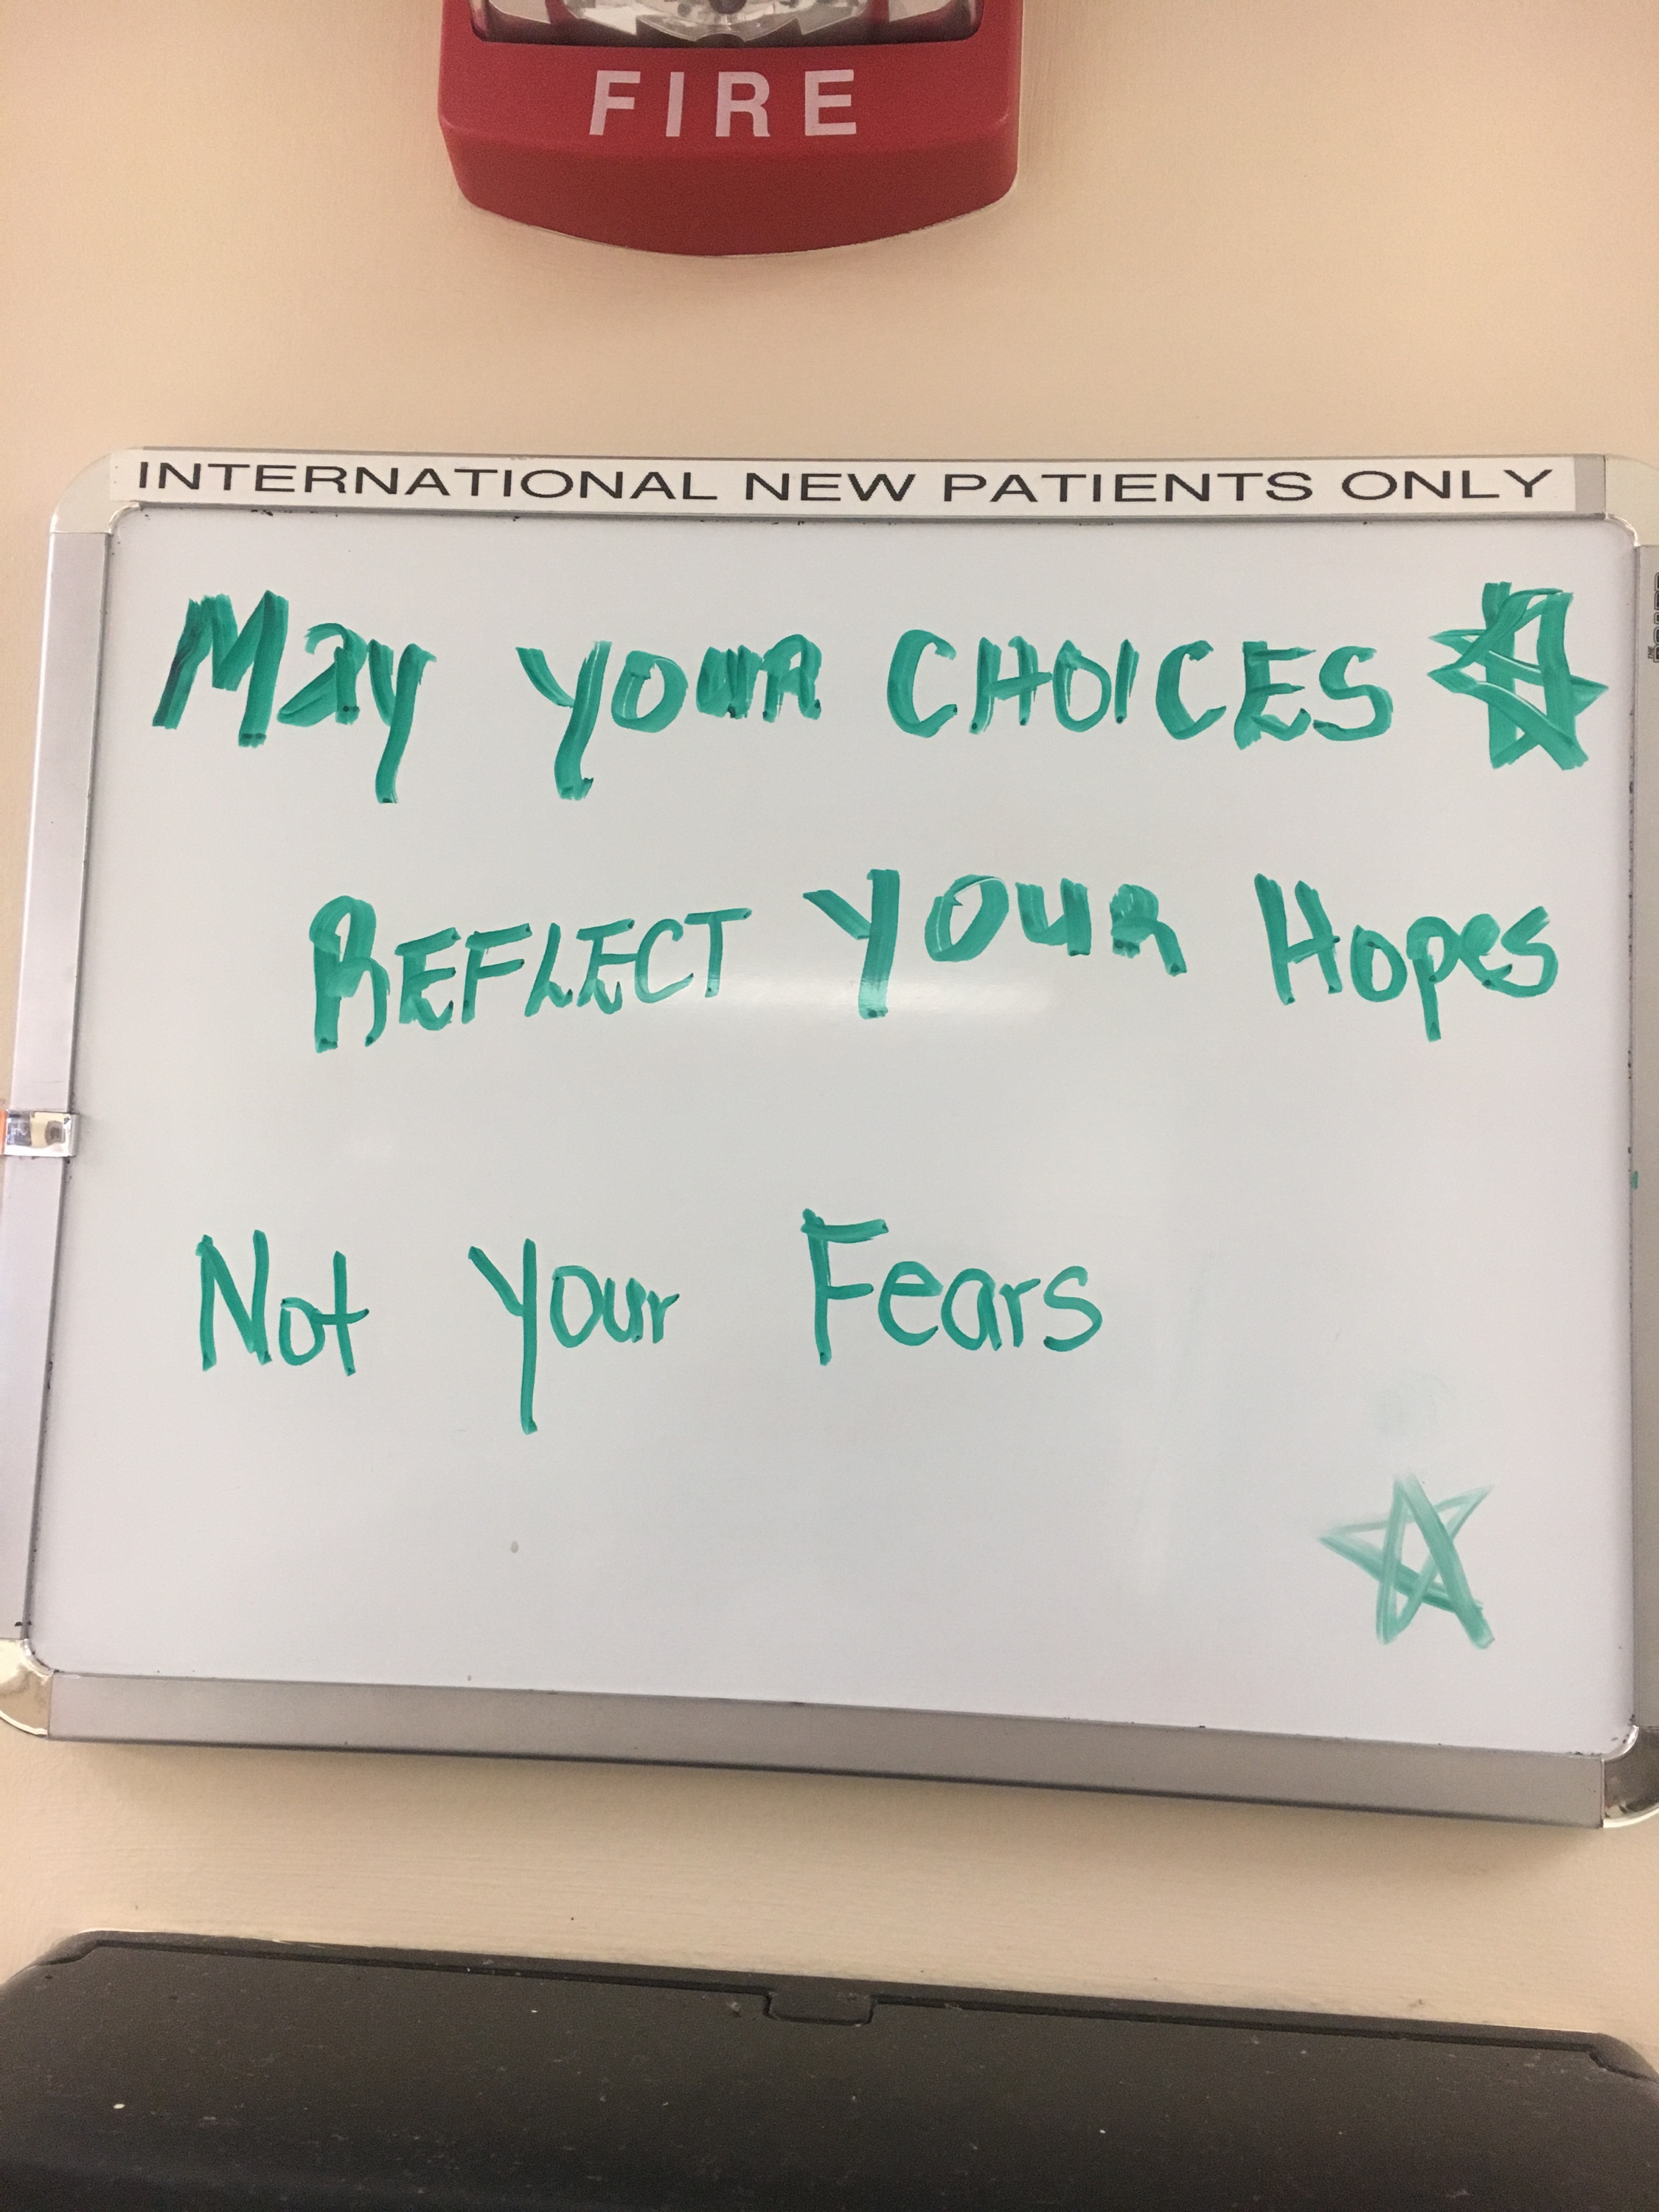 FIRE
INTERNATIONAL NEW PATIENTS ONLY
May your CHOICES
REFLECT YOUR Hopes
Not your Fears